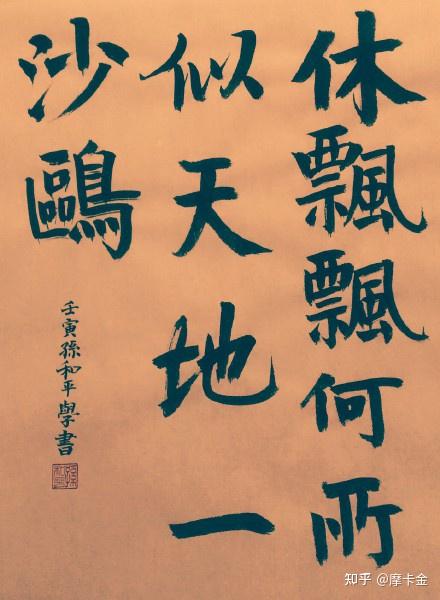 休飄飄何所
似天地一
沙鷗
壬寅孫和平學書
知乎 @摩卡金